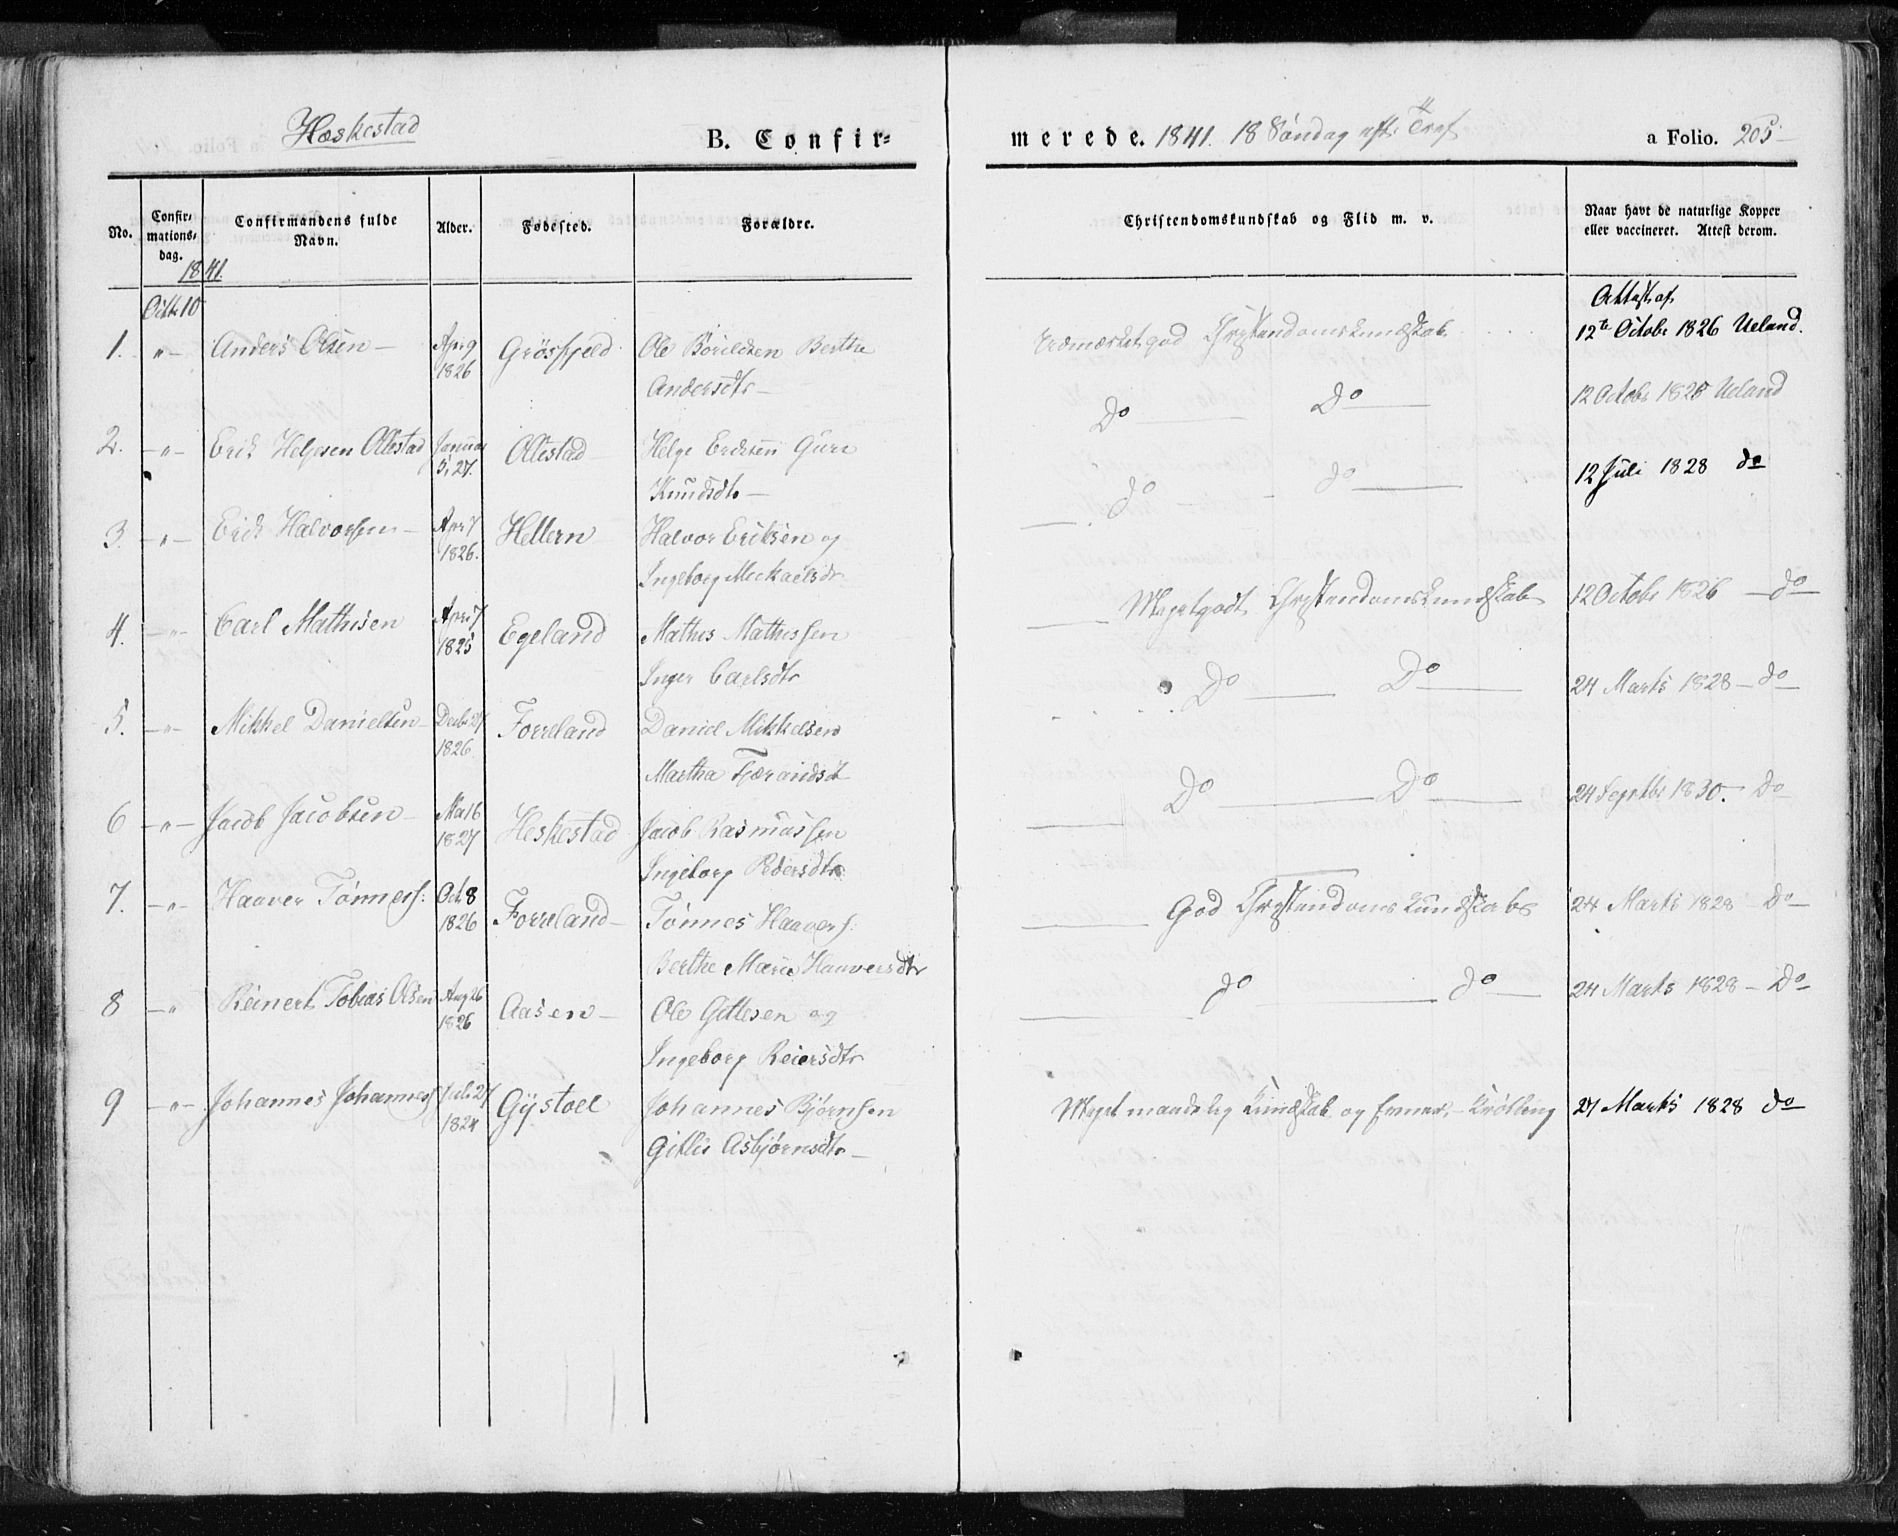 Heskestad
B. Confir-
merede. 1841. 18 Søndag eft: Tref
a Folio. 205
No.
Confir-
mations-
dag.
Confirmandens fulde
Navn.
Alder.
Fødested.
Forældre.
Christendomskundskab og Flid m. v.
Naar havt de naturlige Kopper
eller vaccineret. Attest derom.
1841.
Octbr 10
Attest af
1. -"- Anders Olsen - Apr 9 1826 Grøsfjeld Ole Bareldsen Berthe
Andersdtr -
Udmærket god Christendomskundskab 12te Octobr 1826 Ueland.
2. -"- Erik Helgesen Ollestad Januar 5, 27. Ollestad Helge Eriksen Guri
Knudsdtr -
Do Do 12 Octobr 1826 Ueland
3. -"- Erik Halvorsen - Apr 7 1826. Hellern Halvor Eriksen og
Ingeborg Mickaelsdr
do do 12 Juli 1828 do
4. -"- Carl Mathisen Apr 7 1825 Egeland Mathis Mathissen
Inger Carlsdtr
Meget godt Christendomskundskab 12 Octobr 1826 - do -
5. -"- Mikkel Danielsen - Decbr 27 1826 Forreland Daniel Mikkelsen
Martha Tjerandsd
Do Do 24 Marts 1828 - do -
6 -"- Jacob Jacobsen - Mai 6 1827 Heskestad Jacob Rasmussen
Ingeborg Pedersdtr
Do Do 24 Septbr 1830. Do
7. -"- Haaver Tønnes: Oct 8 1826 Forreland - Tønnes Haavers:
Berthe Marie Haaversdtr
God Christendoms Kundskab 24 Marts 1828 - Do -
8 -" Reinert Tobias Olsen Aug 26 1826 Aasen - Ole Gitlesen og
Ingeborg Reiersdtr
do do 24 Marts 1828 - Do
9 -"- Johannes Johannes Juli 27 1824 Gystoel Johannes Bjørnsen
Gitlie Asbjørnsdtr -
Meget maadelig Kundskab og - Krøbling 27 Marts 1828 do